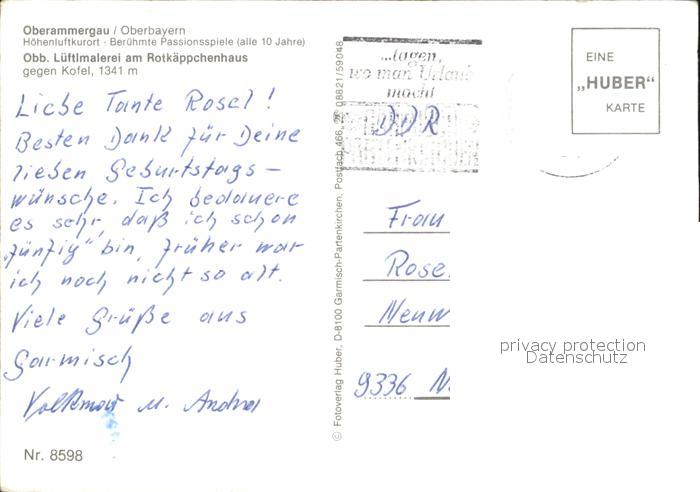 Oberammergau / Oberbayern
Höhenluftkurort · Berühmte Passionsspiele (alle 10 Jahre)
Obb. Lüftlmalerei am Rotkäppchenhaus
gegen Kofel, 1341 m
Liebe Tante Rosel!
Besten Dank für Deine
lieben Geburtstags-
wünsche. Ich bedauere
es sehr, daß ich schon
„fünfzig“ bin, früher war
ich noch nicht so alt.
Viele Grüße aus
Garmisch
Volkmar u. Andrea
Nr. 8598
© Fotoverlag Huber, D-8100 Garmisch-Partenkirchen, Postfach 466, 08821/59048
...tagen,
wo man Urlaub
macht
DDR
EINE
„HUBER“
KARTE
Frau
Rose
Neuw
9336 N
privacy protection
Datenschutz